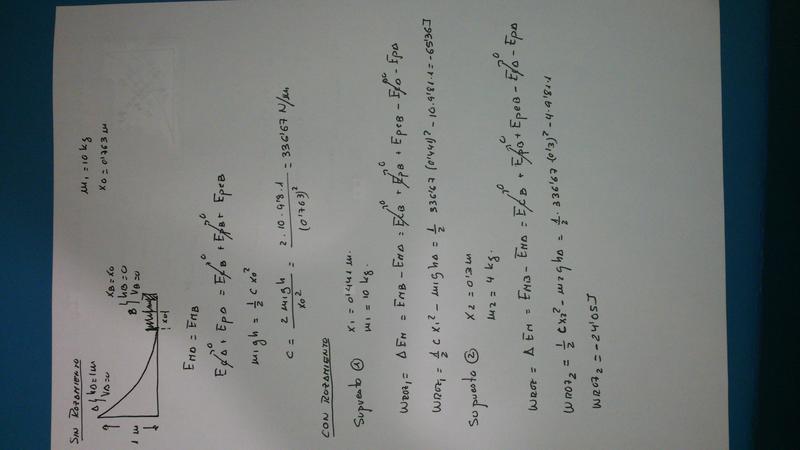 SIN ROZAMIENTO
A { hA = 1 m
VA = 0
1 m
B { hB = 0
VB = 0
XB = X0
X0
m1 = 10 kg
X0 = 0'763 m
EMA = EMB
EcA⁰ + EpA = EcB⁰ + EpB⁰ + EpeB
m1gh = 1/2 C X0²
C = 2 m1gh / X0² = 2·10·9'8·1 / (0'763)² = 336'67 N/m
CON ROZAMIENTO
Supuesto ①
X1 = 0'441 m.
m1 = 10 kg.
WROZ1 = ΔEM = EMB - EMA = EcB⁰ + EpB⁰ + EpeB - EcA⁰ - EpA
WROZ1 = 1/2 C X1² - m1ghA = 1/2 336'67 (0'441)² - 10·9'81·1 = -65'36J
Supuesto ②
X2 = 0'3 m
m2 = 4 kg.
WROZ = ΔEM = EMB - EMA = EcB⁰ + EpB⁰ + EpeB - EcA⁰ - EpA
WROZ2 = 1/2 C X2² - m2ghA = 1/2·336'67 (0'3)² - 4·9'81·1
WROZ2 = -24'05J